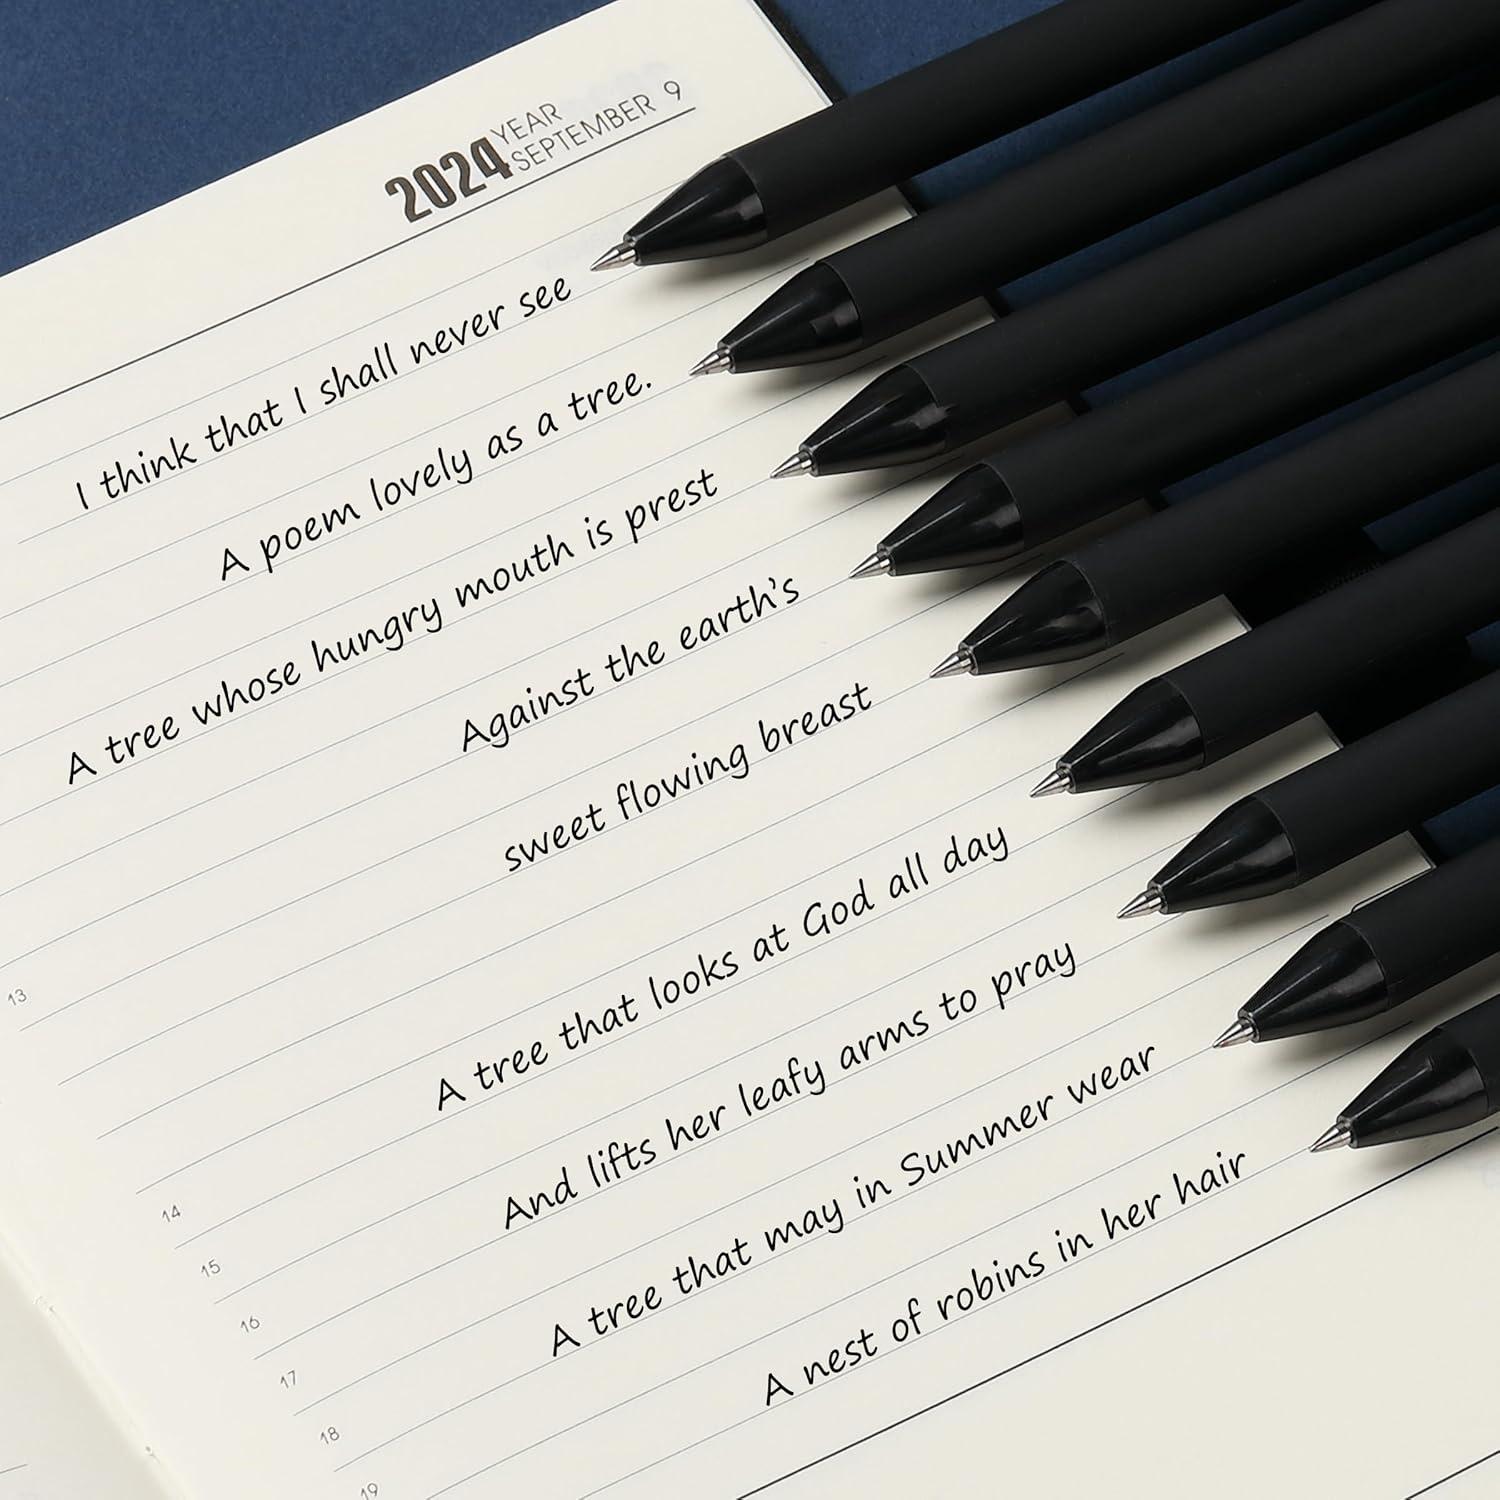 2024 YEAR
SEPTEMBER 9
I think that I shall never see
A poem lovely as a tree.
A tree whose hungry mouth is prest
Against the earth's
sweet flowing breast
A tree that looks at God all day
And lifts her leafy arms to pray
A tree that may in Summer wear
A nest of robins in her hair
13
14
15
16
17
18
19